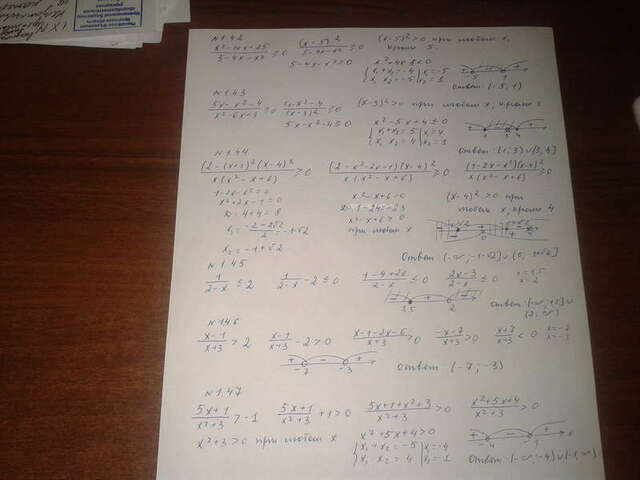 N1.42
x²-10x+25/5-4x-x² ≥0   (x-5)²/5-4x-x² ≥0   (x-5)²>0 при любом x, кроме 5.
5-4x-x²>0   x²+4x-5<0
{x₁+x₂=-4 | x₁=-5
x₁x₂=-5 | x₂=1
Ответ: (-5; 1)
N1.43
5x-x²-4/x²-6x+9 ≥0   5x-x²-4/(x-3)² ≥0   (x-3)²>0 при любом x, кроме 3
5x-x²-4≥0   x²-5x+4≤0
{x₁+x₂=5 | x₁=4
x₁x₂=4 | x₂=1
Ответ: [1; 3)∪(3; 4]
N1.44
(2-(x+1)²)(x-4)²/x(x²-x+6) ≥0   (2-x²-2x-1)(x-4)²/x(x²-x+6) ≥0   (1-2x-x²)(x-4)²/x(x²-x+6) ≥0
1-2x-x²=0   x²-x+6=0   (x-4)²>0 при
x²+2x-1=0   D=1-24=-23   любом x, кроме 4
D=4+4=8   x²-x+6>0
x₁=-2-2√2/2=-1-√2   при любом x
x₂=-1+√2
Ответ: (-∞; -1-√2]∪(0; -1+√2]
N1.45
1/2-x ≤2   1/2-x -2≤0   1-4+2x/2-x ≤0   2x-3/2-x ≤0   x=1,5
x=2
1,5   2
Ответ: (-∞; 1,5]∪
(2; ∞)
N1.46
x-1/x+3 >2   x-1/x+3 -2>0   x-1-2x-6/x+3 >0   -x-7/x+3 >0   x+7/x+3 <0   x=-7
x=-3
+ -7 - -3 +
Ответ: (-7; -3)
N1.47
5x+1/x²+3 >-1   5x+1/x²+3 +1>0   5x+1+x²+3/x²+3 >0   x²+5x+4/x²+3 >0
x²+3>0 при любом x   x²+5x+4>0
{x₁+x₂=-5 | x₁=-4
x₁x₂=4 | x₂=-1
+ -4 - -1 + x
Ответ: (-∞; -4)∪(-1; ∞)